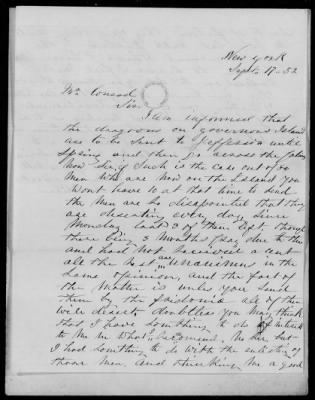 New York
Sept. 17-52
Mr Conrad
Sir
I am informed that
the dragoons on governors Island
are to be sent to Jefferson until
spring and then go across the plains
Now Sir if Such is the case out of 70
Men who are Now on the Island you
Wont have 10 at that time to send
the Men are So disapointed that they
are deserting every day, Since
Monday last 3 of them left though
there being 2 Months pay due to them
and had Not received a cent
all the best and Uraistmen in the
Same opinion, and the fact of
the Matter is unless you Send
them by the fredonia all of them
will desert, doubtless you May think
that I have Something to do of interest
to Me in What I recomend, No Sir but
I had Something to do with the enlisting of
those Men, and thinking Me a good